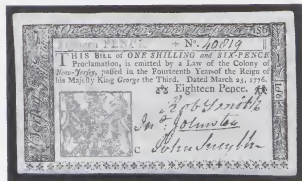 No. 40819
THIS BILL of ONE SHILLING and SIX-PENCE
Proclamation, is emitted by a Law of the Colony of
New-Jersey, passed in the Fourteenth Year of the Reign of
his Majesty King George the Third. Dated March 25, 1776.
Eighteen Pence.
Rob Smith
Jno Johnston
John Smyth